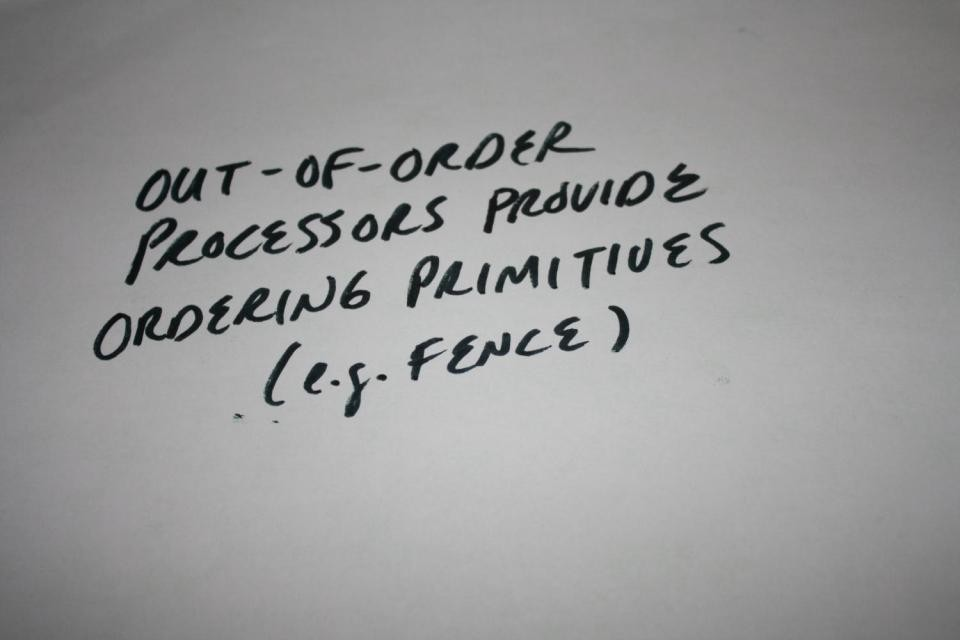 OUT-OF-ORDER
PROCESSORS PROVIDE
ORDERING PRIMITIVES
(e.g. FENCE)